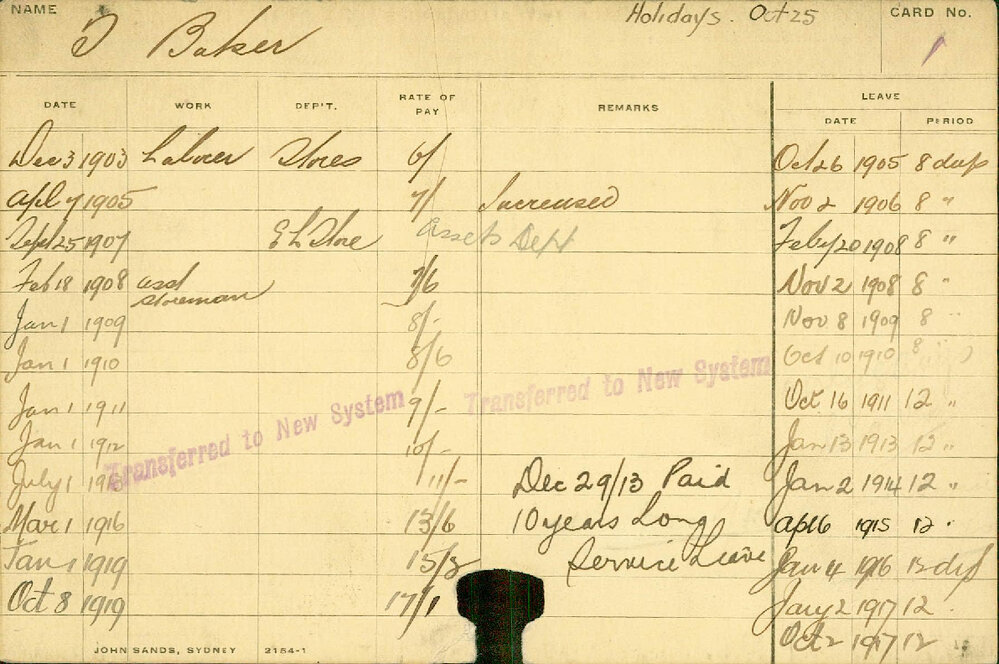 NAME Holidays. Oct 25 CARD No.
T Baker 1
DATE WORK DEP'T. RATE OF PAY REMARKS LEAVE
DATE PERIOD
Dec 3 1903 Laborer Stores 6/ Oct 26 1905 8 days
Apl 7 1905 7/ Increased Nov 2 1906 8 "
Sept 25 1907 E L Store Assets Dept Feby 20 1908 8 "
Feb 18 1908 asst 7/6 Nov 2 1908 8 "
storeman
Jan 1 1909 8/- Nov 8 1909 8 "
Jan 1 1910 8/6 Oct 10 1910 8 "
Transferred to New System
Transferred to New System
Jan 1 1911 9/- Oct 16 1911 12 "
Jan 1 1912 10/- Jan 13 1913 12 "
July 1 11/- Dec 29/13 Paid Jan 2 1914 12 "
Mar 1 1916 13/6 10 years Long Apl 6 1915 12 "
Jan 1 1919 15/3 Service Leave Jan 4 1916 12 dys
Oct 8 1919 17/1 Jany 2 1917 12 "
Oct 2 1917 12
JOHN SANDS, SYDNEY 2154-1